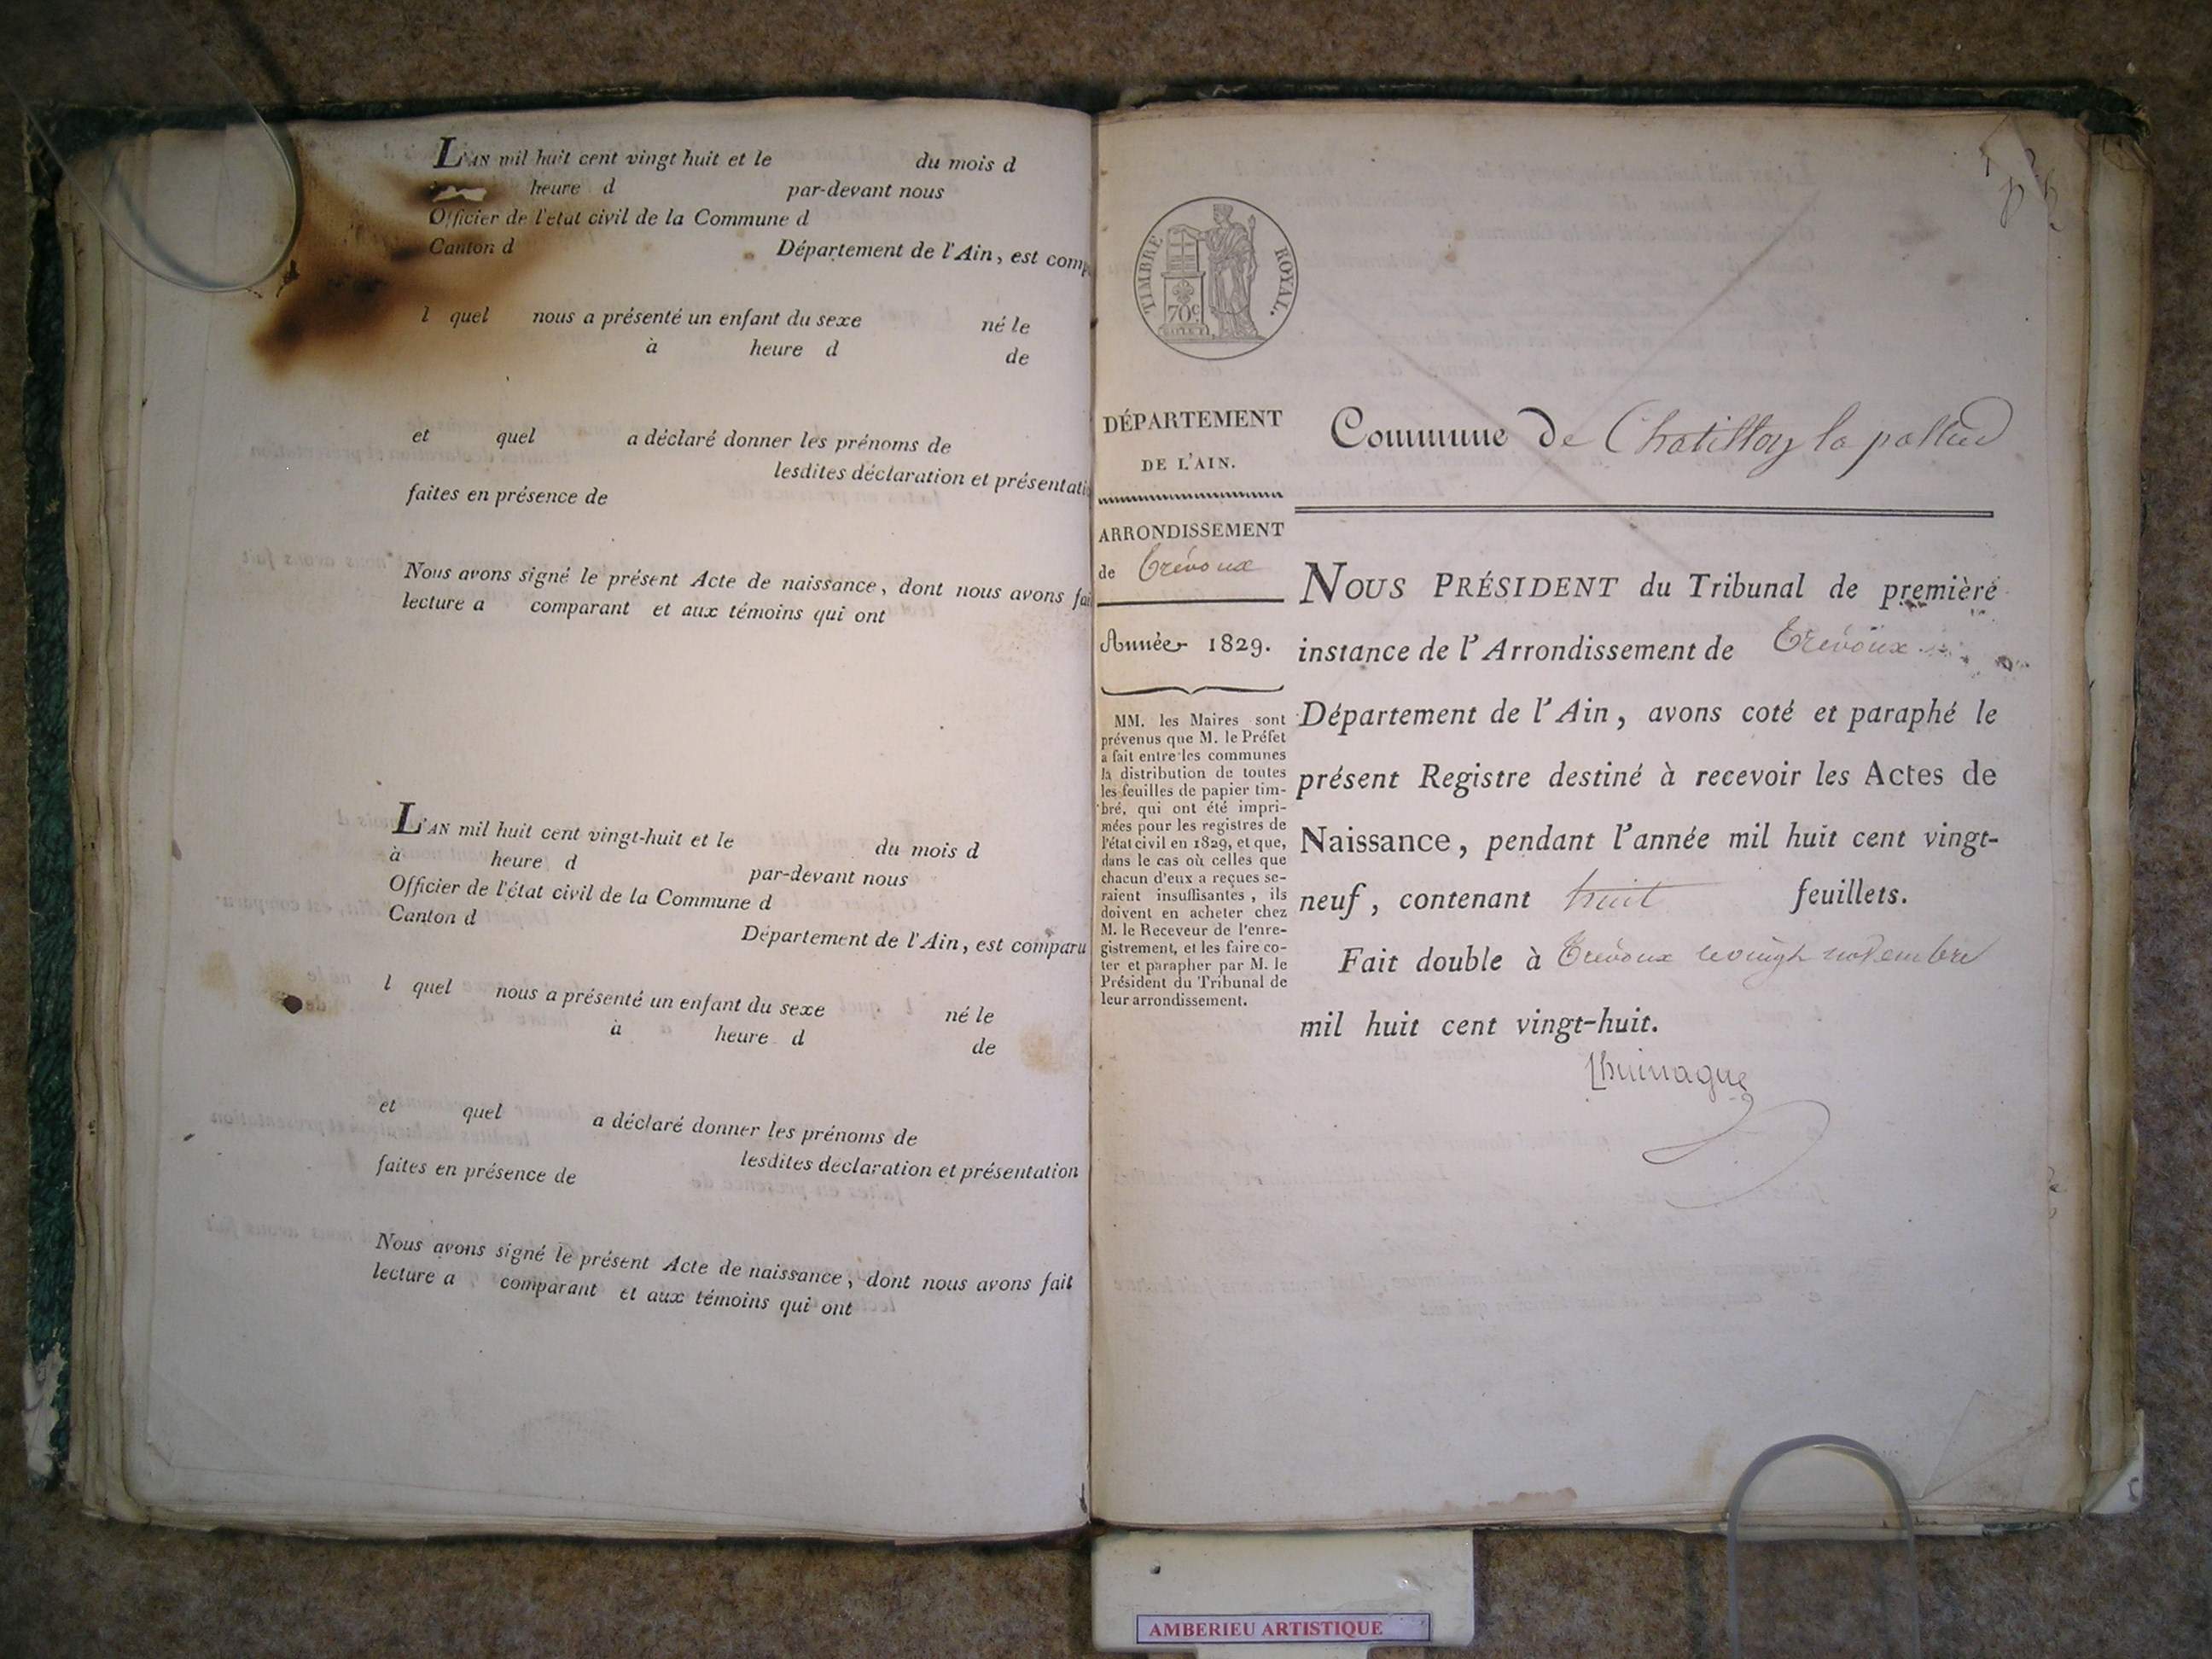 L'AN mil huit cent vingt huit et le du mois d
heure d par-devant nous
Officier de l'état civil de la Commune d
Canton d Département de l'Ain, est comp
l quel nous a présenté un enfant du sexe né le
à heure d de
et quel a déclaré donner les prénoms de
lesdites déclaration et présentati
faites en présence de
Nous avons signé le présent Acte de naissance, dont nous avons fai
lecture a comparant et aux témoins qui ont
L'AN mil huit cent vingt-huit et le du mois d
à heure d par-devant nous
Officier de l'état civil de la Commune d
Canton d Département de l'Ain, est comparu
l quel nous a présenté un enfant du sexe né le
à heure d de
et quel a déclaré donner les prénoms de
lesdites déclaration et présentation
faites en présence de
Nous avons signé le présent Acte de naissance, dont nous avons fait
lecture a comparant et aux témoins qui ont
TIMBRE ROYAL.
70c
DÉPARTEMENT
DE L'AIN.
ARRONDISSEMENT
de Trévoux
Année 1829.
MM. les Maires sont
prévenus que M. le Préfet
a fait entre les communes
la distribution de toutes
les feuilles de papier tim-
bré, qui ont été impri-
mées pour les registres de
l'état civil en 1829, et que,
dans le cas où celles que
chacun d'eux a reçues se-
raient insuffisantes, ils
doivent en acheter chez
M. le Receveur de l'enre-
gistrement, et les faire co-
ter et parapher par M. le
Président du Tribunal de
leur arrondissement.
Commune de Chatillon la pallud
NOUS PRÉSIDENT du Tribunal de première
instance de l'Arrondissement de Trévoux
Département de l'Ain, avons coté et paraphé le
présent Registre destiné à recevoir les Actes de
Naissance, pendant l'année mil huit cent vingt-
neuf, contenant huit feuillets.
Fait double à Trévoux le vingt novembre
mil huit cent vingt-huit.
AMBERIEU ARTISTIQUE